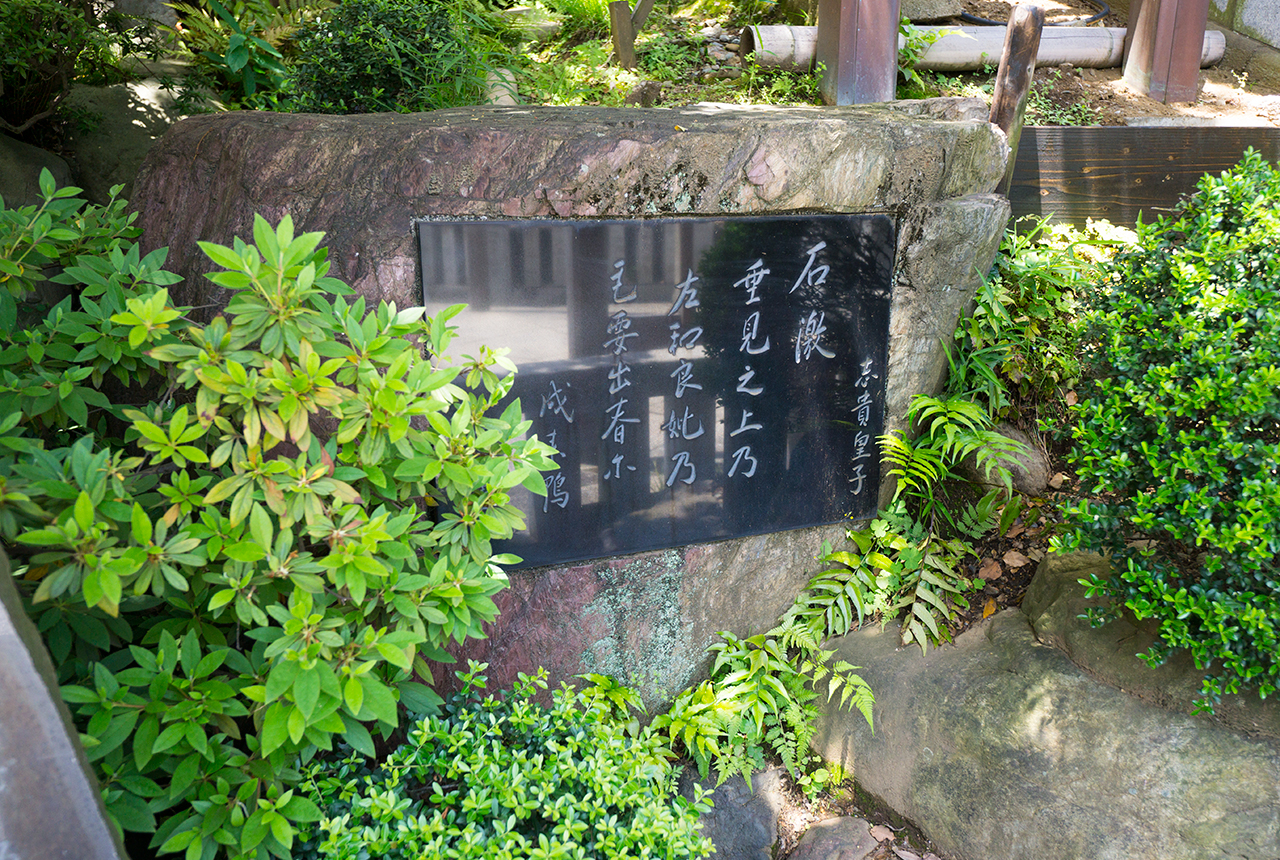 志貴皇子
石激
垂見之上乃
左和良妣乃
毛要出春尓
成来鴨